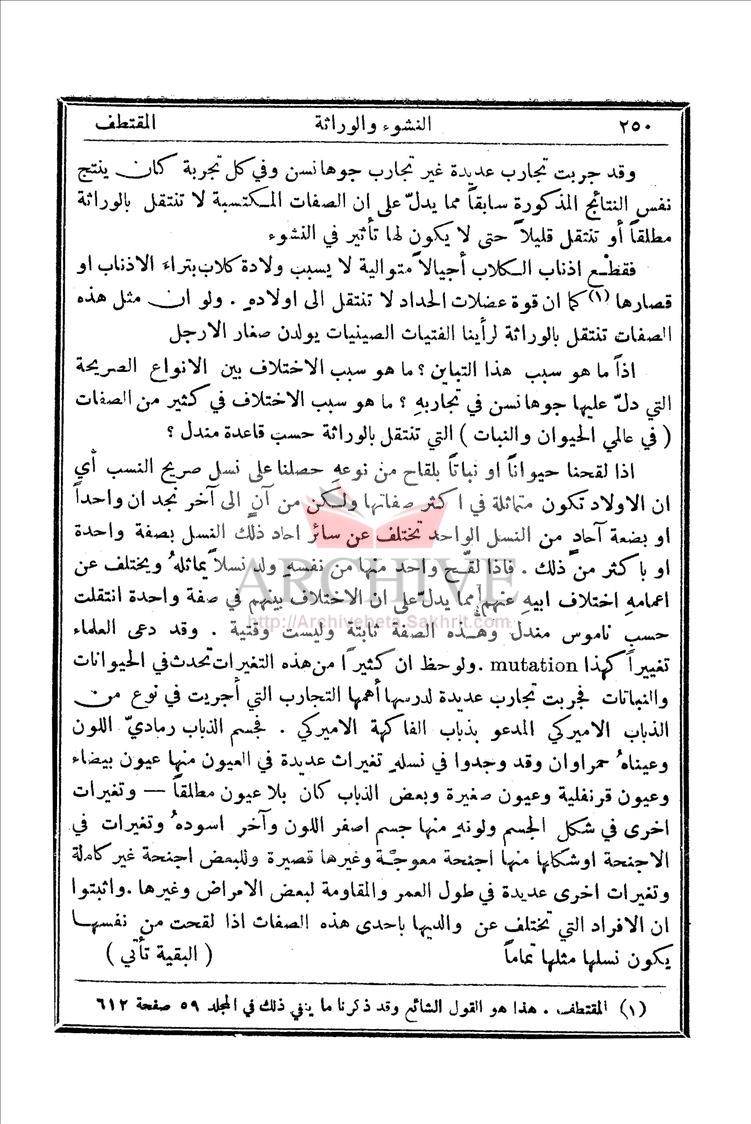 ٢٥٠ النشوء والوراثة المقتطف
وقد جربت تجارب عديدة غير تجارب جوهانسن وفي كل تجربة كان ينتج
نفس النتائج المذكورة سابقاً مما يدلّ على ان الصفات المكتسبة لا تنتقل بالوراثة
مطلقاً أو تنتقل قليلاً حتى لا يكون لها تأثير في النشوء
فقطع اذناب الكلاب أجيالاً متوالية لا يسبب ولادة كلاب بتراء الاذناب او
قصارها (١) كما ان قوة عضلات الحداد لا تنتقل الى اولادهِ . ولو ان مثل هذه
الصفات تنتقل بالوراثة لرأينا الفتيات الصينيات يولدن صغار الارجل
اذاً ما هو سبب هذا التباين ؟ ما هو سبب الاختلاف بين الانواع الصريحة
التي دلّ عليها جوهانسن في تجاربهِ ؟ ما هو سبب الاختلاف في كثير من الصفات
( في عالمي الحيوان والنبات ) التي تنتقل بالوراثة حسب قاعدة مندل ؟
اذا لقحنا حيواناً او نباتاً بلقاح من نوعهِ حصلنا على نسل صريح النسب أي
ان الاولاد تكون متماثلة في اكثر صفاتها ولكن من آن الى آخر نجد ان واحداً
او بضعة آحادٍ من النسل الواحد تختلف عن سائر احاد ذلك النسل بصفة واحدة
او باكثر من ذلك . فاذا لقح واحد منها من نفسهِ ولد نسلاً يماثلهُ ويختلف عن
اعمامهِ اختلاف ابيهِ عنهم مما يدلّ على ان الاختلاف بينهم في صفة واحدة انتقلت
حسب ناموس مندل وهذه الصفة ثابتة وليست وقتية . وقد دعى العلماء
تغييراً كهذا mutation . ولوحظ ان كثيراً من هذه التغيرات تحدث في الحيوانات
والنباتات فجربت تجارب عديدة لدرسها أهمها التجارب التي أجريت في نوع من
الذباب الاميركي المدعو بذباب الفاكهة الاميركي . فجسم الذباب رماديّ اللون
وعيناهُ حمراوان وقد وجدوا في نسلهِ تغيرات عديدة في العيون منها عيون بيضاء
وعيون قرنفلية وعيون صغيرة وبعض الذباب كان بلا عيون مطلقاً — وتغيرات
اخرى في شكل الجسم ولونهِ منها جسم اصفر اللون وآخر اسودهُ وتغيرات في
الاجنحة اوشكالها منها اجنحة معوجّة وغيرها قصيرة وللبعض اجنحة غير كاملة
وتغيرات اخرى عديدة في طول العمر والمقاومة لبعض الامراض وغيرها . واثبتوا
ان الافراد التي تختلف عن والديها باحدى هذه الصفات اذا لقحت من نفسها
يكون نسلها مثلها تماماً ( البقية تأتي )
(١) المقتطف . هذا هو القول الشائع وقد ذكرنا ما ينفي ذلك في المجلد ٥٩ صفحة ٦١٢
ARCHIVE
http://Archivebeta.Sakhrit.com